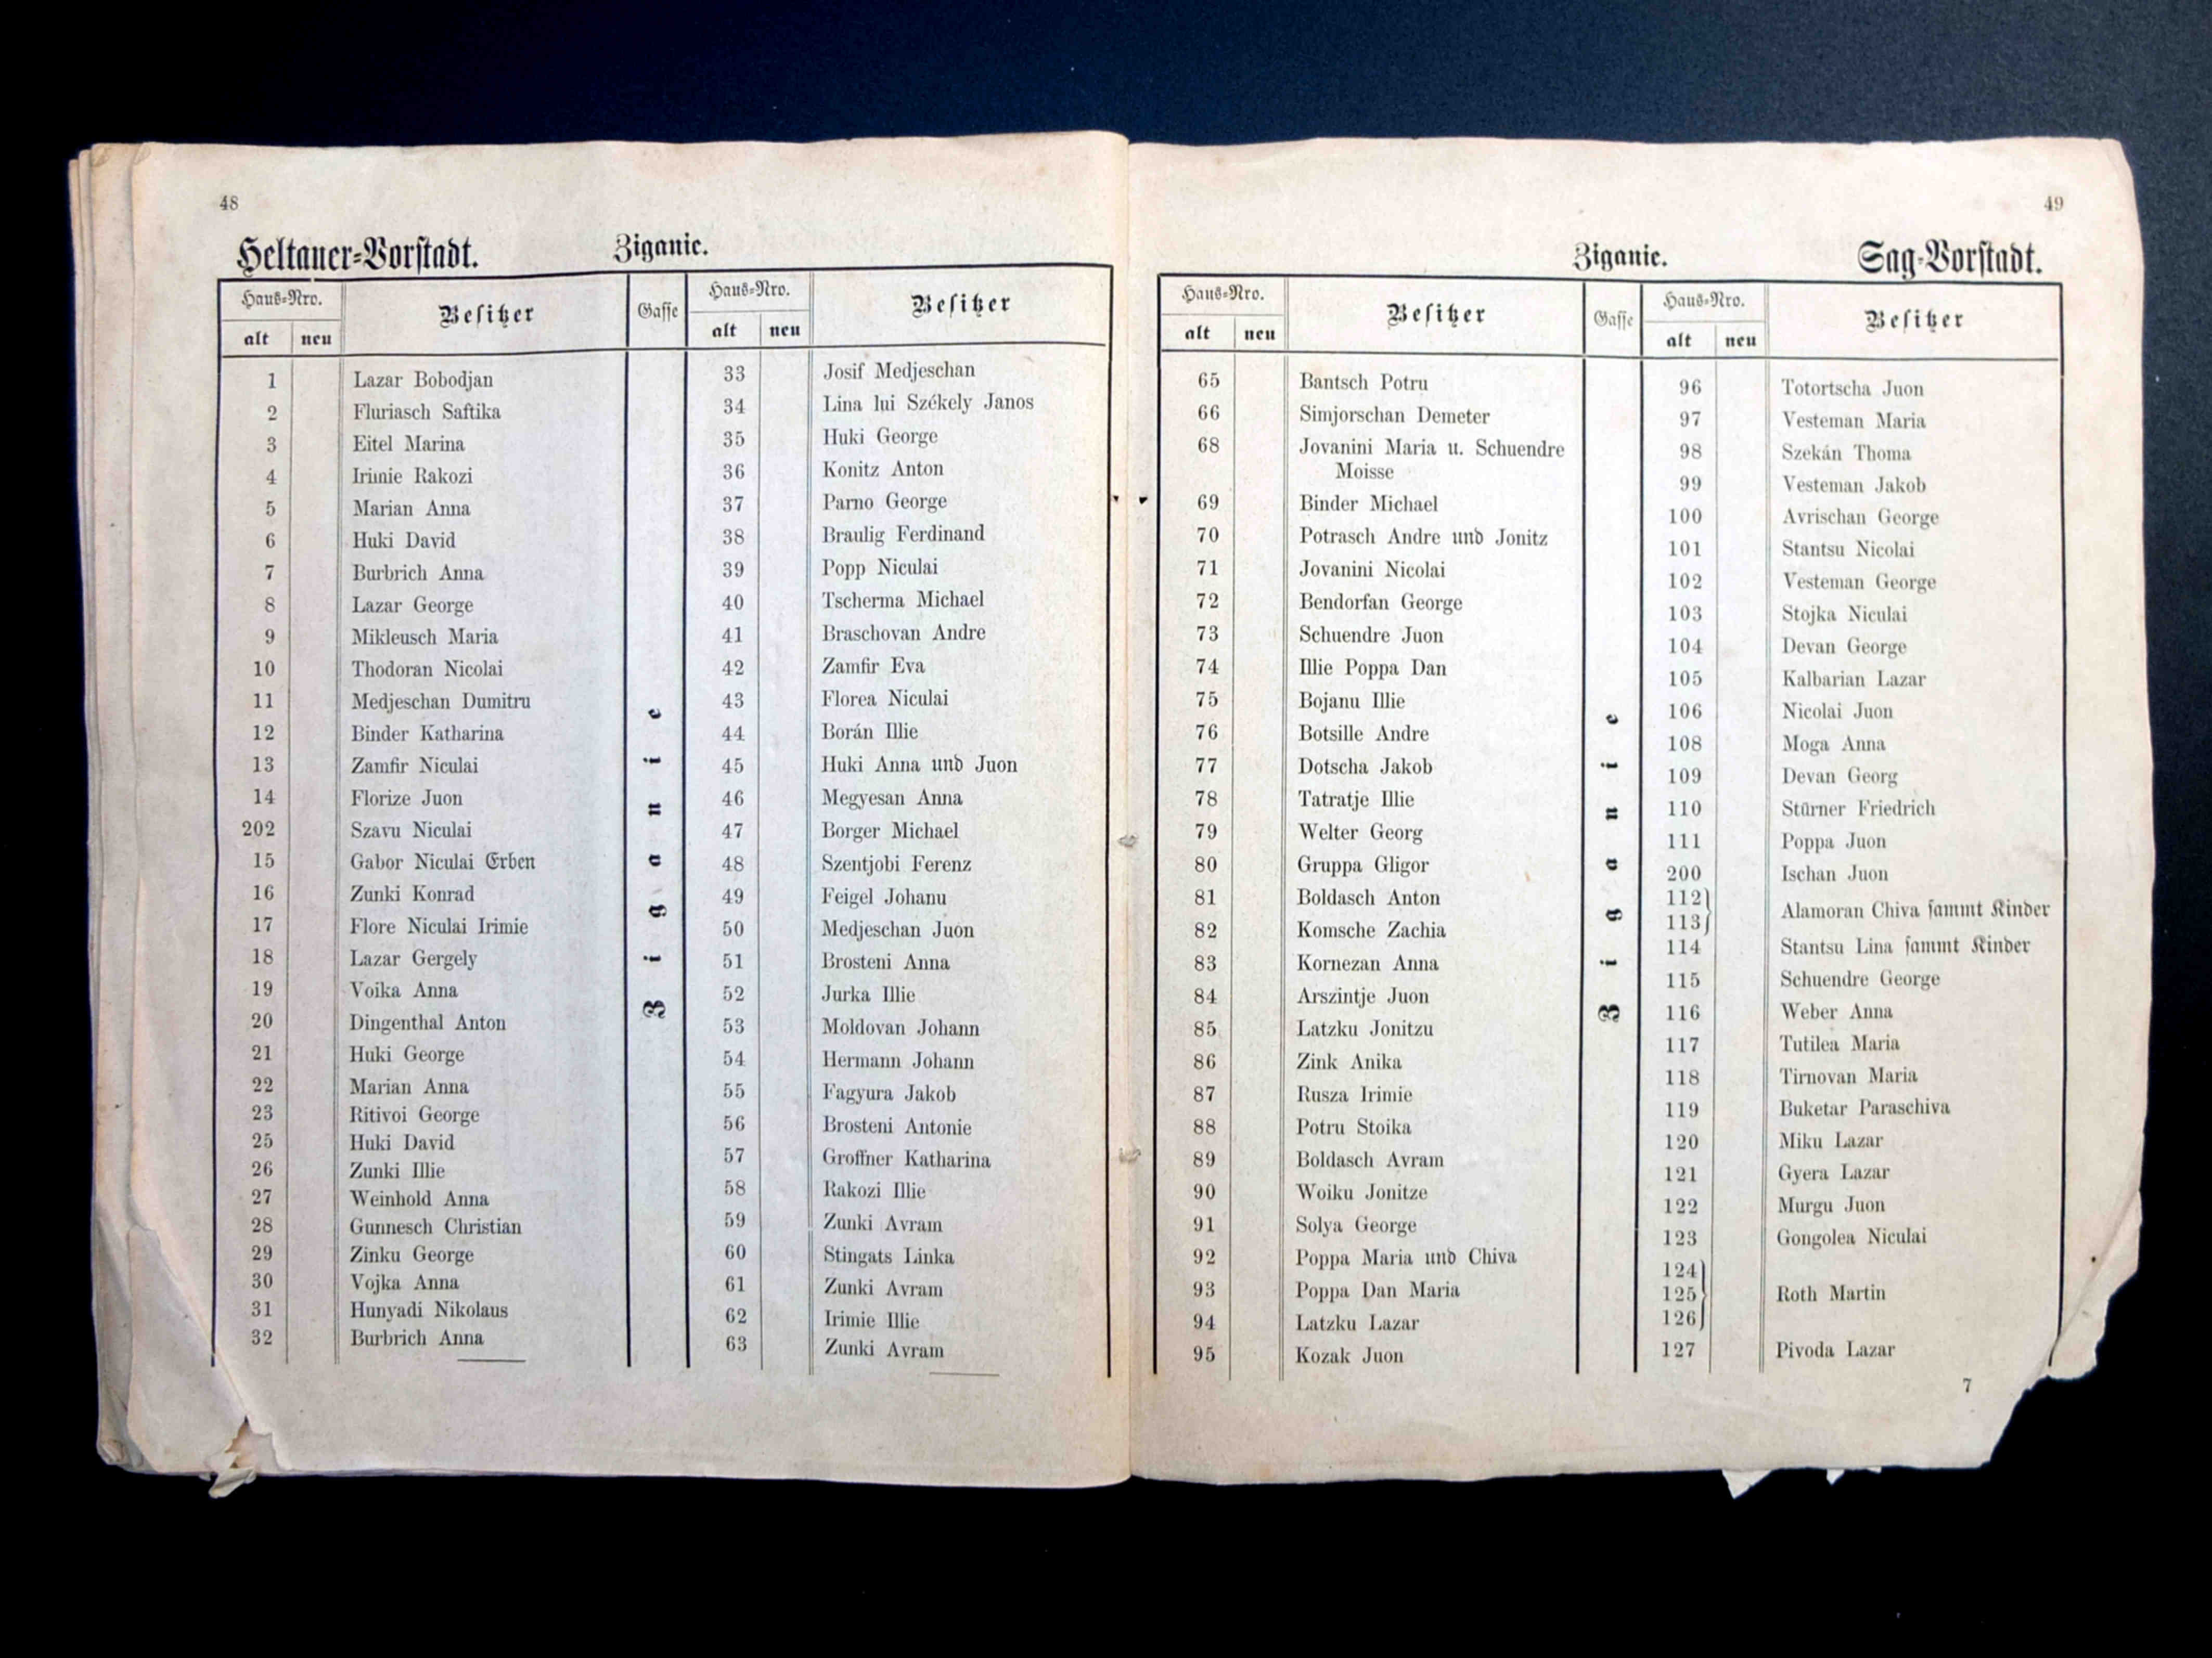 48
Heltauer-Vorstadt. Ziganie.
Haus-Nro. Besitzer Gasse Haus-Nro. Besitzer
alt neu alt neu
1 Lazar Bobodjan
2 Fluriasch Saftika
3 Eitel Marina
4 Irimie Rakozi
5 Marian Anna
6 Huki David
7 Burbrich Anna
8 Lazar George
9 Mikleusch Maria
10 Thodoran Nicolai
11 Medjeschan Dumitru
12 Binder Katharina
13 Zamfir Niculai
14 Florize Juon
202 Szavu Niculai
15 Gabor Niculai Erben
16 Zunki Konrad
17 Flore Niculai Irimie
18 Lazar Gergely
19 Voika Anna
20 Dingenthal Anton
21 Huki George
22 Marian Anna
23 Ritivoi George
25 Huki David
26 Zunki Illie
27 Weinhold Anna
28 Gunnesch Christian
29 Zinku George
30 Vojka Anna
31 Hunyadi Nikolaus
32 Burbrich Anna
Ziganie
33 Josif Medjeschan
34 Lina lui Székely Janos
35 Huki George
36 Konitz Anton
37 Parno George
38 Braulig Ferdinand
39 Popp Niculai
40 Tscherma Michael
41 Braschovan Andre
42 Zamfir Eva
43 Florea Niculai
44 Borán Illie
45 Huki Anna und Juon
46 Megyesan Anna
47 Borger Michael
48 Szentjobi Ferenz
49 Feigel Johanu
50 Medjeschan Juon
51 Brosteni Anna
52 Jurka Illie
53 Moldovan Johann
54 Hermann Johann
55 Fagyura Jakob
56 Brosteni Antonie
57 Groffner Katharina
58 Rakozi Illie
59 Zunki Avram
60 Stingats Linka
61 Zunki Avram
62 Irimie Illie
63 Zunki Avram
49
Ziganie. Sag-Vorstadt.
Haus-Nro. Besitzer Gasse Haus-Nro. Besitzer
alt neu alt neu
65 Bantsch Potru
66 Simjorschan Demeter
68 Jovanini Maria u. Schuendre
Moisse
69 Binder Michael
70 Potrasch Andre und Jonitz
71 Jovanini Nicolai
72 Bendorfan George
73 Schuendre Juon
74 Illie Poppa Dan
75 Bojanu Illie
76 Botsille Andre
77 Dotscha Jakob
78 Tatratje Illie
79 Welter Georg
80 Gruppa Gligor
81 Boldasch Anton
82 Komsche Zachia
83 Kornezan Anna
84 Arszintje Juon
85 Latzku Jonitzu
86 Zink Anika
87 Rusza Irimie
88 Potru Stoika
89 Boldasch Avram
90 Woiku Jonitze
91 Solya George
92 Poppa Maria und Chiva
93 Poppa Dan Maria
94 Latzku Lazar
95 Kozak Juon
Ziganie
96 Totortscha Juon
97 Vesteman Maria
98 Szekán Thoma
99 Vesteman Jakob
100 Avrischan George
101 Stantsu Nicolai
102 Vesteman George
103 Stojka Niculai
104 Devan George
105 Kalbarian Lazar
106 Nicolai Juon
108 Moga Anna
109 Devan Georg
110 Stürner Friedrich
111 Poppa Juon
200 Ischan Juon
112}
113} Alamoran Chiva sammt Kinder
114 Stantsu Lina sammt Kinder
115 Schuendre George
116 Weber Anna
117 Tutilea Maria
118 Tirnovan Maria
119 Buketar Paraschiva
120 Miku Lazar
121 Gyera Lazar
122 Murgu Juon
123 Gongolea Niculai
124}
125} Roth Martin
126}
127 Pivoda Lazar
7